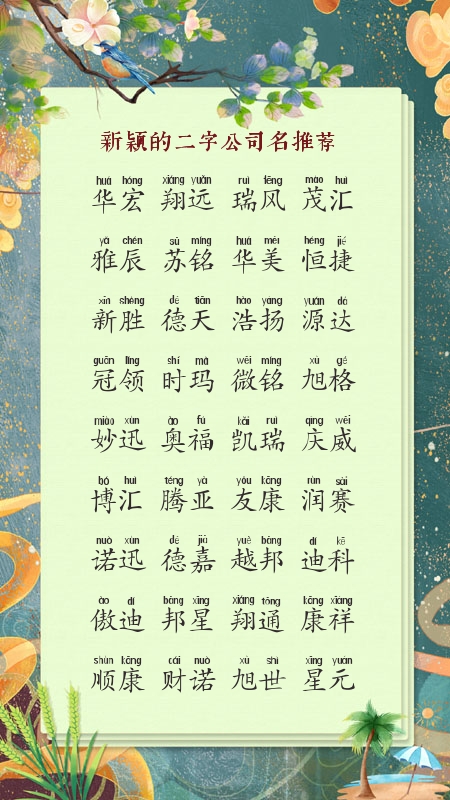 新颖的二字公司名推荐
huá hóng xiáng yuǎn ruì fēng mào huì
华宏 翔远 瑞风 茂汇
yǎ chén sū míng huá měi héng jié
雅辰 苏铭 华美 恒捷
xīn shèng dé tiān hào yáng yuán dá
新胜 德天 浩扬 源达
guān lǐng shí mǎ wēi míng xù gé
冠领 时玛 微铭 旭格
miào xùn ào fú kǎi ruì qìng wēi
妙迅 奥福 凯瑞 庆威
bó huì téng yà yǒu kāng rùn sài
博汇 腾亚 友康 润赛
nuò xùn dé jiā yuè bāng dí kē
诺迅 德嘉 越邦 迪科
ào dí bāng xīng xiáng tōng kāng xiáng
傲迪 邦星 翔通 康祥
shùn kāng cái nuò xù shì xīng yuán
顺康 财诺 旭世 星元